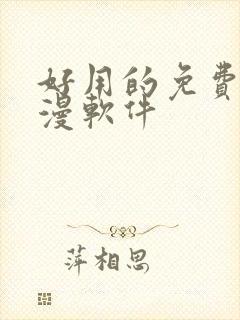 好用的免費
漫軟件
萍相思